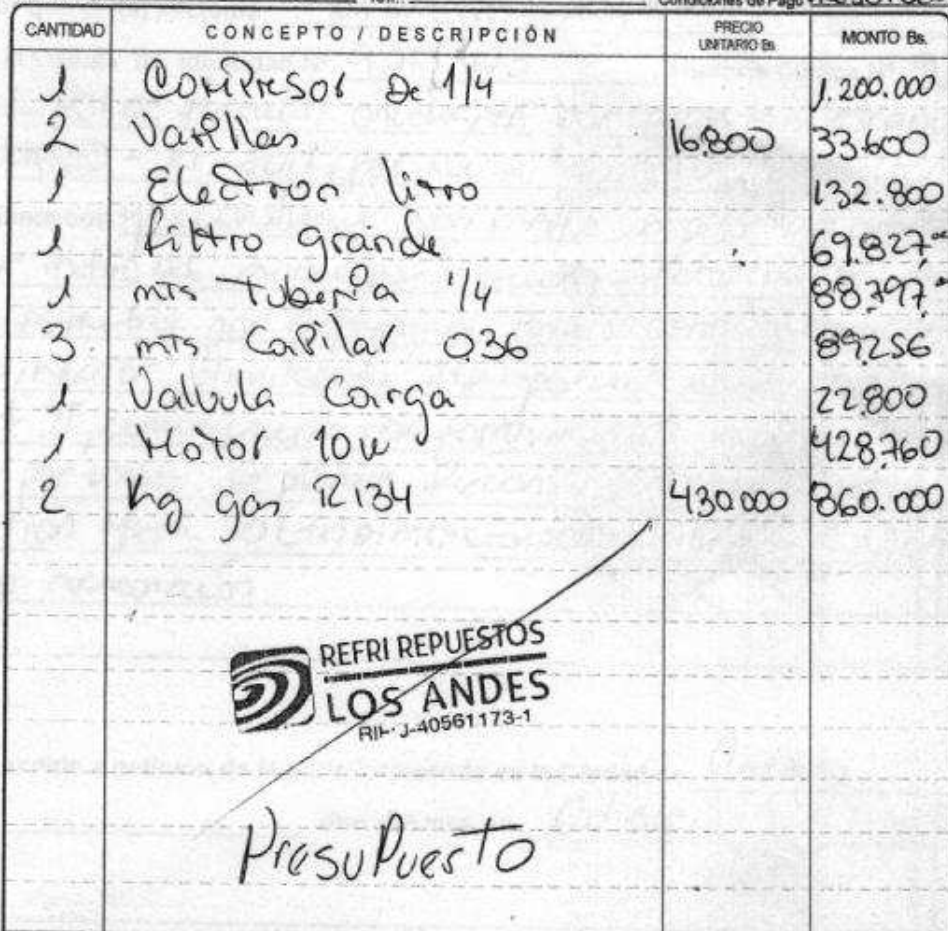 Condiciones de Pago
CANTIDAD CONCEPTO / DESCRIPCIÓN PRECIO UNITARIO Bs. MONTO Bs.
1 Compresor de 1/4 1.200.000
2 Varillas 16.800 33.600
1 Electron litro 132.800
1 filtro grande 69.827,00
1 mts tuberia 1/4 88.797,00
3 mts Capilar 036 89.256
1 Valvula Carga 22.800
1 Motor 10w 428.760
2 Kg gas R134 430.000 860.000
REFRI REPUESTOS
LOS ANDES
RIF: J-40561173-1
Presupuesto